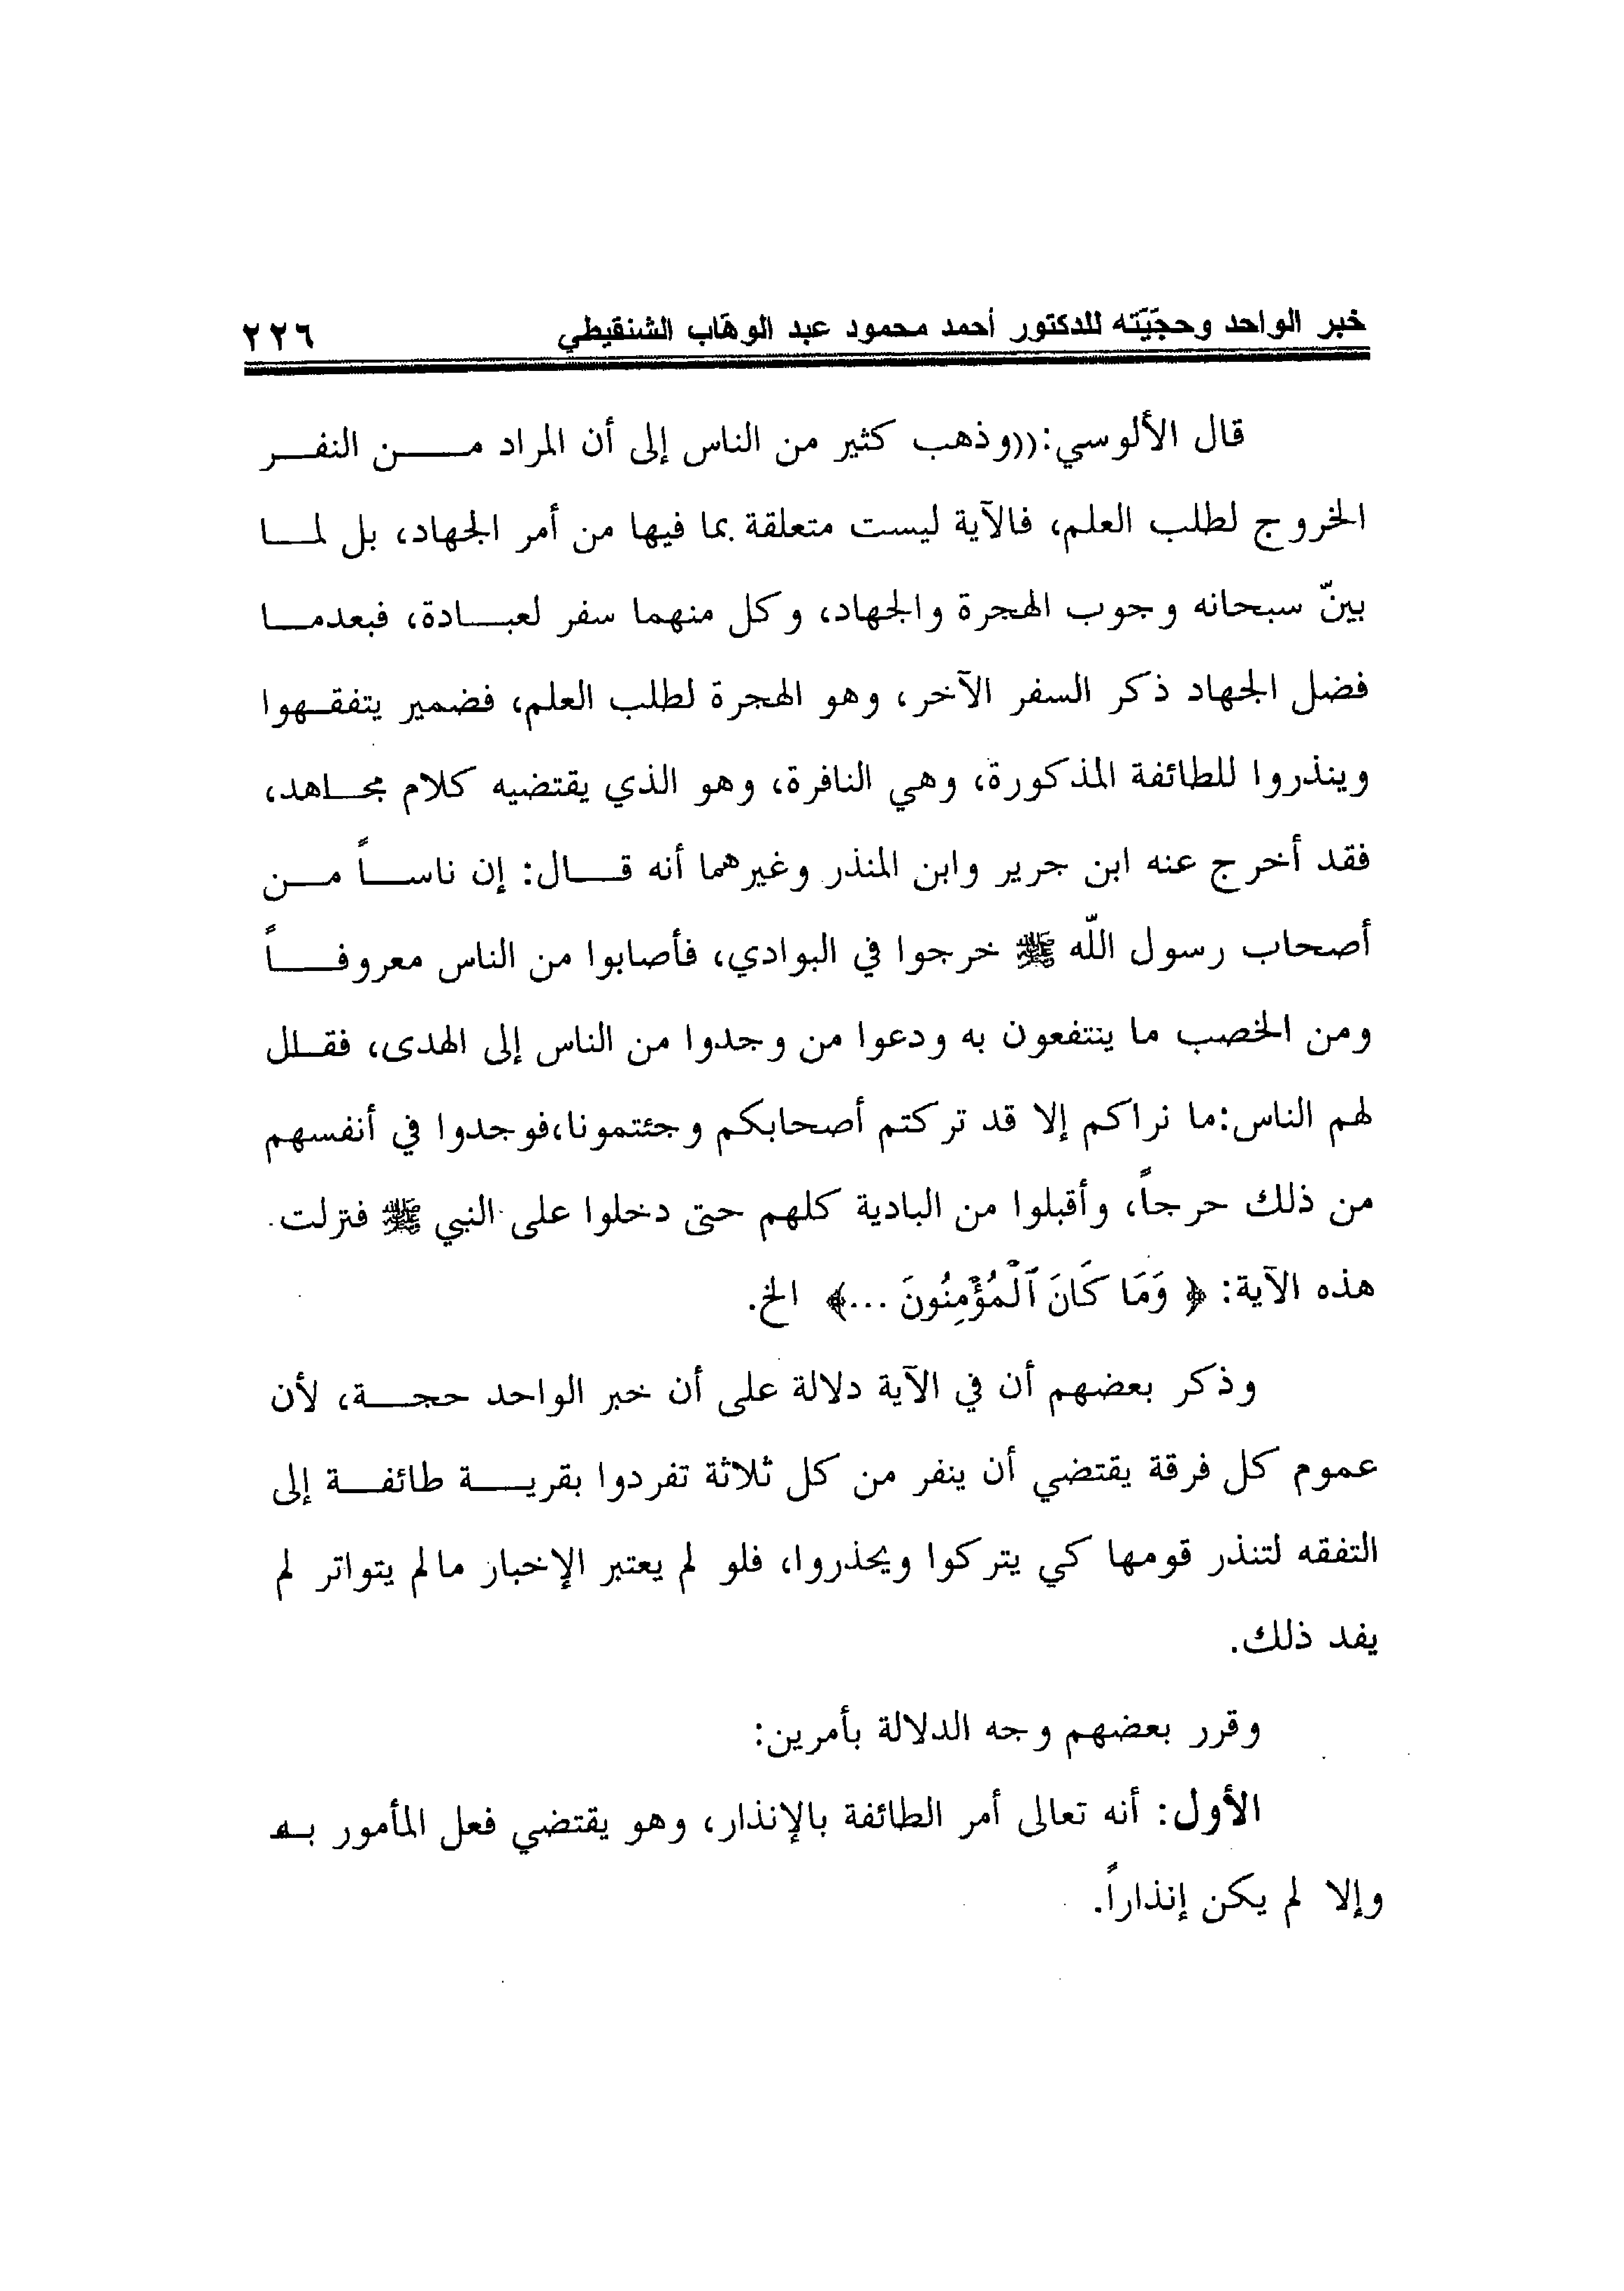 خبر الواحد وحجّيّته للدكتور أحمد محمود عبد الوهّاب الشنقيطي ٢٢٦
قال الألوسي:((وذهب كثير من الناس إلى أن المراد من النفر
الخروج لطلب العلم، فالآية ليست متعلقة بما فيها من أمر الجهاد، بل لما
بينّ سبحانه وجوب الهجرة والجهاد، وكل منهما سفر لعبادة، فبعدما
فضل الجهاد ذكر السفر الآخر، وهو الهجرة لطلب العلم، فضمير يتفقهوا
وينذروا للطائفة المذكورة، وهي النافرة، وهو الذي يقتضيه كلام مجاهد،
فقد أخرج عنه ابن جرير وابن المنذر وغيرهما أنه قال: إن ناساً من
أصحاب رسول اللّه ﷺ خرجوا في البوادي، فأصابوا من الناس معروفاً
ومن الخصب ما ينتفعون به ودعوا من وجدوا من الناس إلى الهدى، فقلل
لهم الناس:ما نراكم إلا قد تركتم أصحابكم وجئتمونا،فوجدوا في أنفسهم
من ذلك حرجاً، وأقبلوا من البادية كلهم حتى دخلوا على النبي ﷺ فنزلت
هذه الآية: ﴿ وَمَا كَانَ ٱلْمُؤْمِنُونَ ...﴾ الخ.
وذكر بعضهم أن في الآية دلالة على أن خبر الواحد حجة، لأن
عموم كل فرقة يقتضي أن ينفر من كل ثلاثة تفردوا بقرية طائفة إلى
التفقه لتنذر قومها كي يتركوا ويحذروا، فلو لم يعتبر الإخبار مالم يتواتر لم
يفد ذلك.
وقرر بعضهم وجه الدلالة بأمرين:
الأول: أنه تعالى أمر الطائفة بالإنذار، وهو يقتضي فعل المأمور به
وإلا لم يكن إنذاراً.